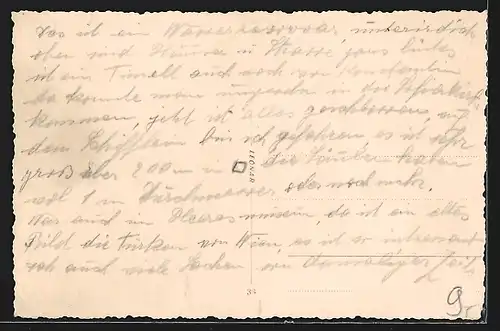 Das ist ein Wasserreservoar, unterirdisch
oben sind Häuser u Strasse ganz links
ist ein Tunell auch noch von Konstantin
da konnte man ungesehn in die
kommen, jetzt ist alles geschlossen, mit
dem Schifflein bin ich gefahren, es ist sehr
groß über 200 m in □ die Säulen haben
wol 1 m Durchmesser oder noch mehr.
War auch im Heeresmuseum, da ist ein altes
Bild die Türken vor Wien es ist so interessant
noch auch viele Sachen von damaliger Zeit
33